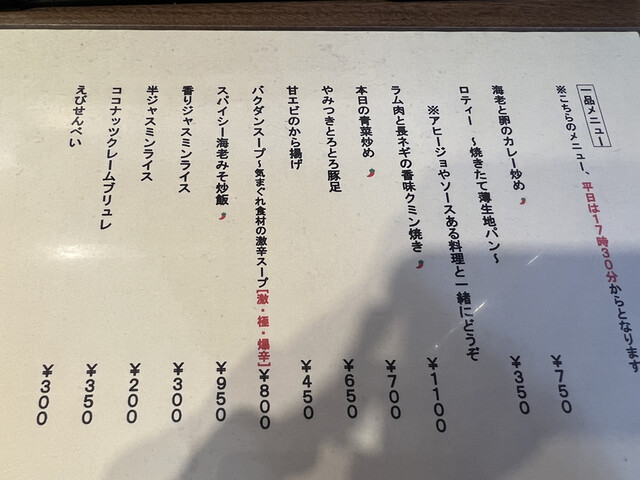 一品メニュー
※こちらのメニュー、平日は17時30分からとなります
海老と卵のカレー炒め ¥750
ロティー ～焼きたて薄生地パン～ ¥350
※アヒージョやソースある料理と一緒にどうぞ
ラム肉と長ネギの香味クミン焼き ¥1100
本日の青菜炒め ¥700
やみつきとろとろ豚足 ¥650
甘エビのから揚げ ¥450
バクダンスープ～気まぐれ食材の激辛スープ[激・極・爆辛] ¥800
スパイシー海老みそ炒飯 ¥950
香りジャスミンライス ¥300
半ジャスミンライス ¥200
ココナッツクレームブリュレ ¥350
えびせんべい ¥300